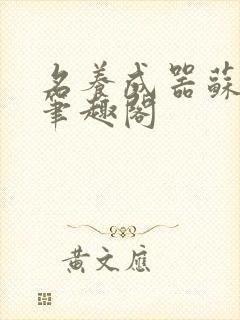 名養成器蘇
筆趣閣
黃文應